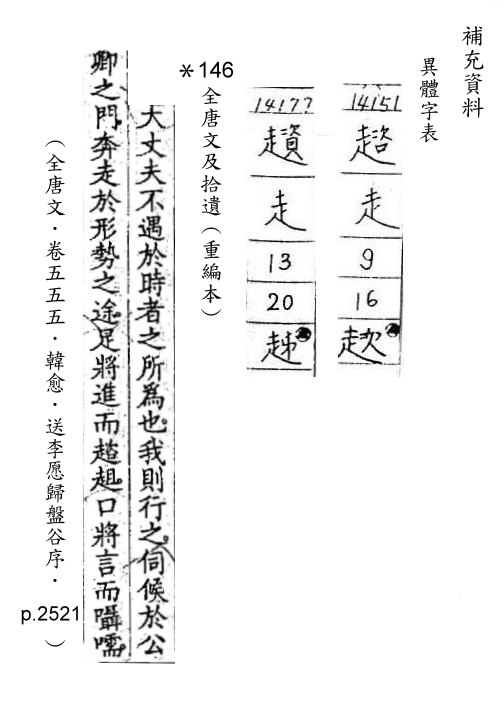 補充資料
異體字表
14151
趦
走
9
16
趑
14177
走
13
20
*146
全唐文及拾遺（重編本）
大丈夫不遇於時者之所為也。我則行之。伺候於公
卿之門。奔走於形勢之途。足將進而趦趄。口將言而囁嚅。
（全唐文．卷五五五．韓愈．送李愿歸盤谷序．p.2521）